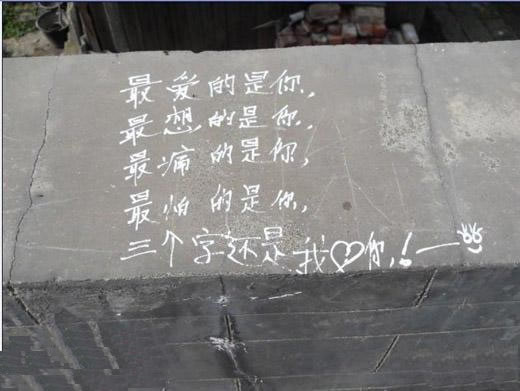 最爱的是你,
最想的是你,
最痛的是你,
最怕的是你,
三个字还是我♡你,!一